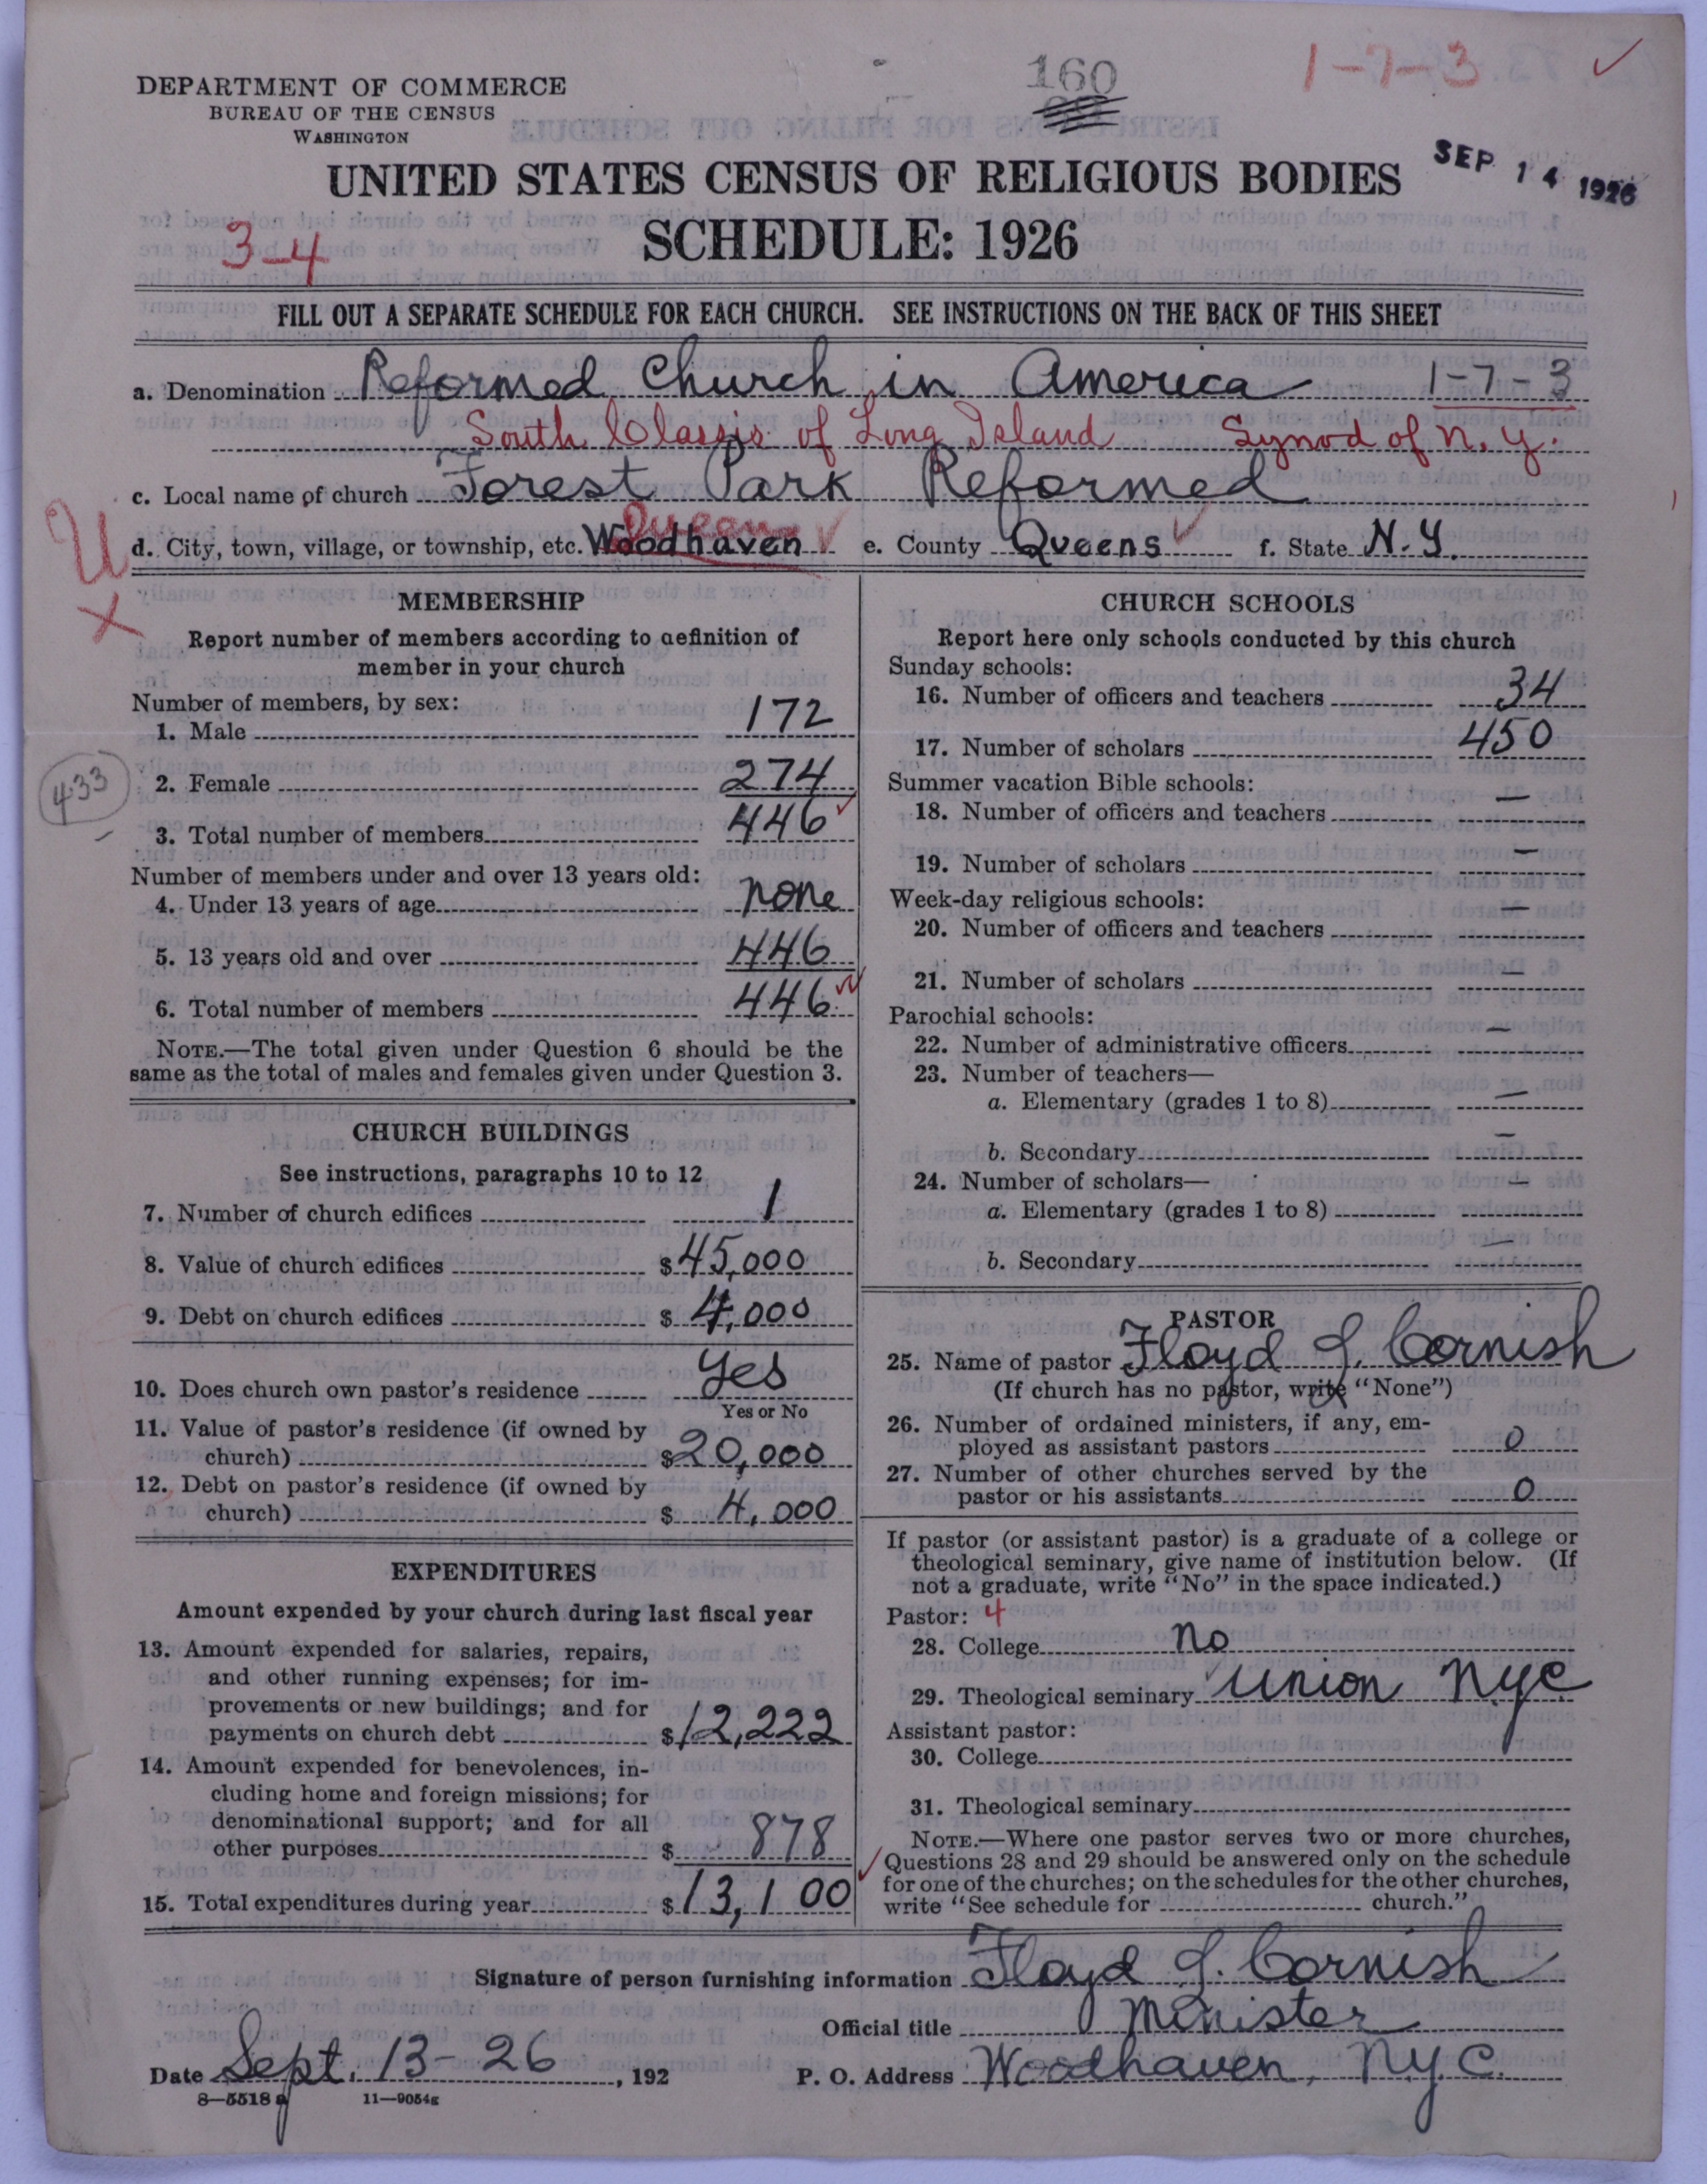 160
1-7-3 ✓
DEPARTMENT OF COMMERCE
BUREAU OF THE CENSUS
WASHINGTON
UNITED STATES CENSUS OF RELIGIOUS BODIES
SEP 14 1926
SCHEDULE: 1926
3-4
FILL OUT A SEPARATE SCHEDULE FOR EACH CHURCH. SEE INSTRUCTIONS ON THE BACK OF THIS SHEET
a. Denomination Reformed Church in America 1-7-3
South Classis of Long Island Synod of N.Y.
c. Local name of church Forest Park Reformed
Queens
d. City, town, village, or township, etc. Woodhaven e. County Queens f. State N.Y.
U
X
MEMBERSHIP
Report number of members according to definition of
member in your church
Number of members, by sex:
1. Male 172
2. Female 274
433
3. Total number of members 446
Number of members under and over 13 years old:
4. Under 13 years of age none
5. 13 years old and over 446
6. Total number of members 446
NOTE.—The total given under Question 6 should be the
same as the total of males and females given under Question 3.
CHURCH BUILDINGS
See instructions, paragraphs 10 to 12
7. Number of church edifices 1
8. Value of church edifices $45,000
9. Debt on church edifices $4,000
10. Does church own pastor's residence Yes
Yes or No
11. Value of pastor's residence (if owned by
church) $20,000
12. Debt on pastor's residence (if owned by
church) $4,000
EXPENDITURES
Amount expended by your church during last fiscal year
13. Amount expended for salaries, repairs,
and other running expenses; for im-
provements or new buildings; and for
payments on church debt $12,222
14. Amount expended for benevolences, in-
cluding home and foreign missions; for
denominational support; and for all
other purposes $878
15. Total expenditures during year $13,100
CHURCH SCHOOLS
Report here only schools conducted by this church
Sunday schools:
16. Number of officers and teachers 34
17. Number of scholars 450
Summer vacation Bible schools:
18. Number of officers and teachers —
19. Number of scholars —
Week-day religious schools:
20. Number of officers and teachers —
21. Number of scholars —
Parochial schools:
22. Number of administrative officers —
23. Number of teachers—
a. Elementary (grades 1 to 8) —
b. Secondary —
24. Number of scholars—
a. Elementary (grades 1 to 8) —
b. Secondary —
PASTOR
25. Name of pastor Floyd J. Cornish
(If church has no pastor, write "None")
26. Number of ordained ministers, if any, em-
ployed as assistant pastors 0
27. Number of other churches served by the
pastor or his assistants 0
If pastor (or assistant pastor) is a graduate of a college or
theological seminary, give name of institution below. (If
not a graduate, write "No" in the space indicated.)
Pastor: 4
28. College no
29. Theological seminary Union NYC
Assistant pastor:
30. College
31. Theological seminary
NOTE.—Where one pastor serves two or more churches,
Questions 28 and 29 should be answered only on the schedule
for one of the churches; on the schedules for the other churches,
write "See schedule for church."
Signature of person furnishing information Floyd J. Cornish
Official title Minister
Date Sept. 13-26, 192 P. O. Address Woodhaven, N.Y.C.
8—5518 a 11—9054g